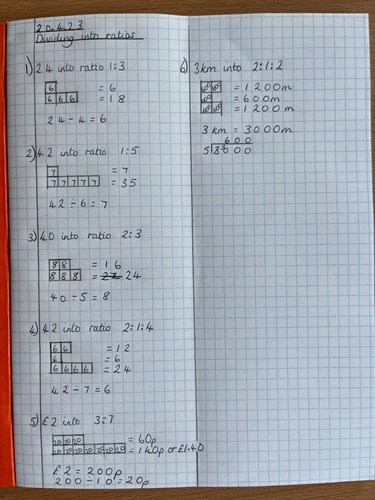 20.4.23
Dividing into ratios
1) 24 into ratio 1:3
6 = 6
6 6 6 = 18
24 ÷ 4 = 6
2) 42 into ratio 1:5
7 = 7
7 7 7 7 7 = 35
42 ÷ 6 = 7
3) 40 into ratio 2:3
8 8 = 16
8 8 8 = 24
40 ÷ 5 = 8
4) 42 into ratio 2:1:4
6 6 = 12
6 = 6
6 6 6 6 = 24
42 ÷ 7 = 6
5) £2 into 3:7
20 20 20 = 60p
20 20 20 20 20 20 20 = 140p or £1.40
£2 = 200p
200 ÷ 10 = 20p
6) 3km into 2:1:2
600 600 = 1200m
600 = 600m
600 600 = 1200m
3km = 3000m
600
5 3000